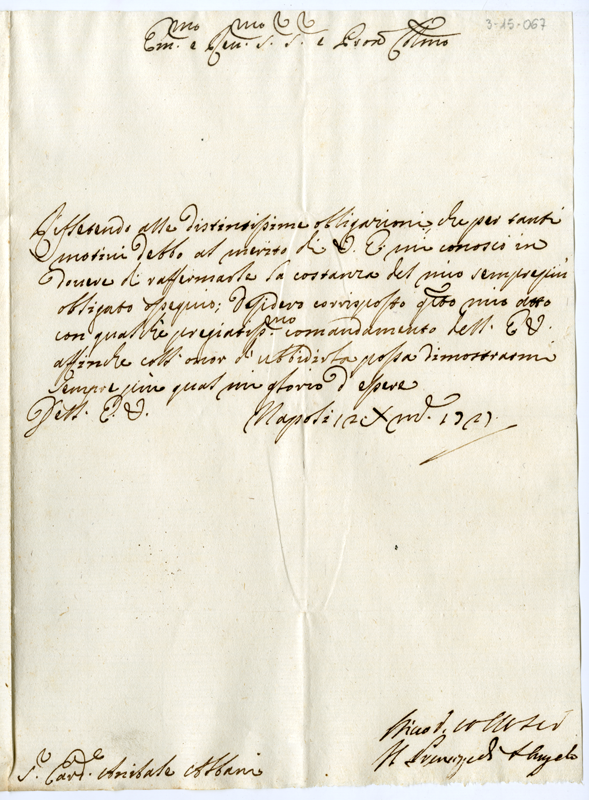 3-15-067
Em.mo e Rev.mo S.r S.r e Pron Colmo
Riflettendo alle distintissime obligazioni, che per tanti
motivi debbo al merito di V. E. mi conosco in
dovere di raffermarle la costanza del mio sempre più
obligato ossequio; desidero corrisposto q.sto mio atto
con qualche pregiatiss.mo comandamento dell' E. V.
affinche coll' onor d' ubbidirla possa dimostrarmi
sempre più qual mi glorio d' essere
Dell' E. V. Napoli 12 Xmb.
S.r Card.e Anibale Albani
Il Prencipe di S Angelo